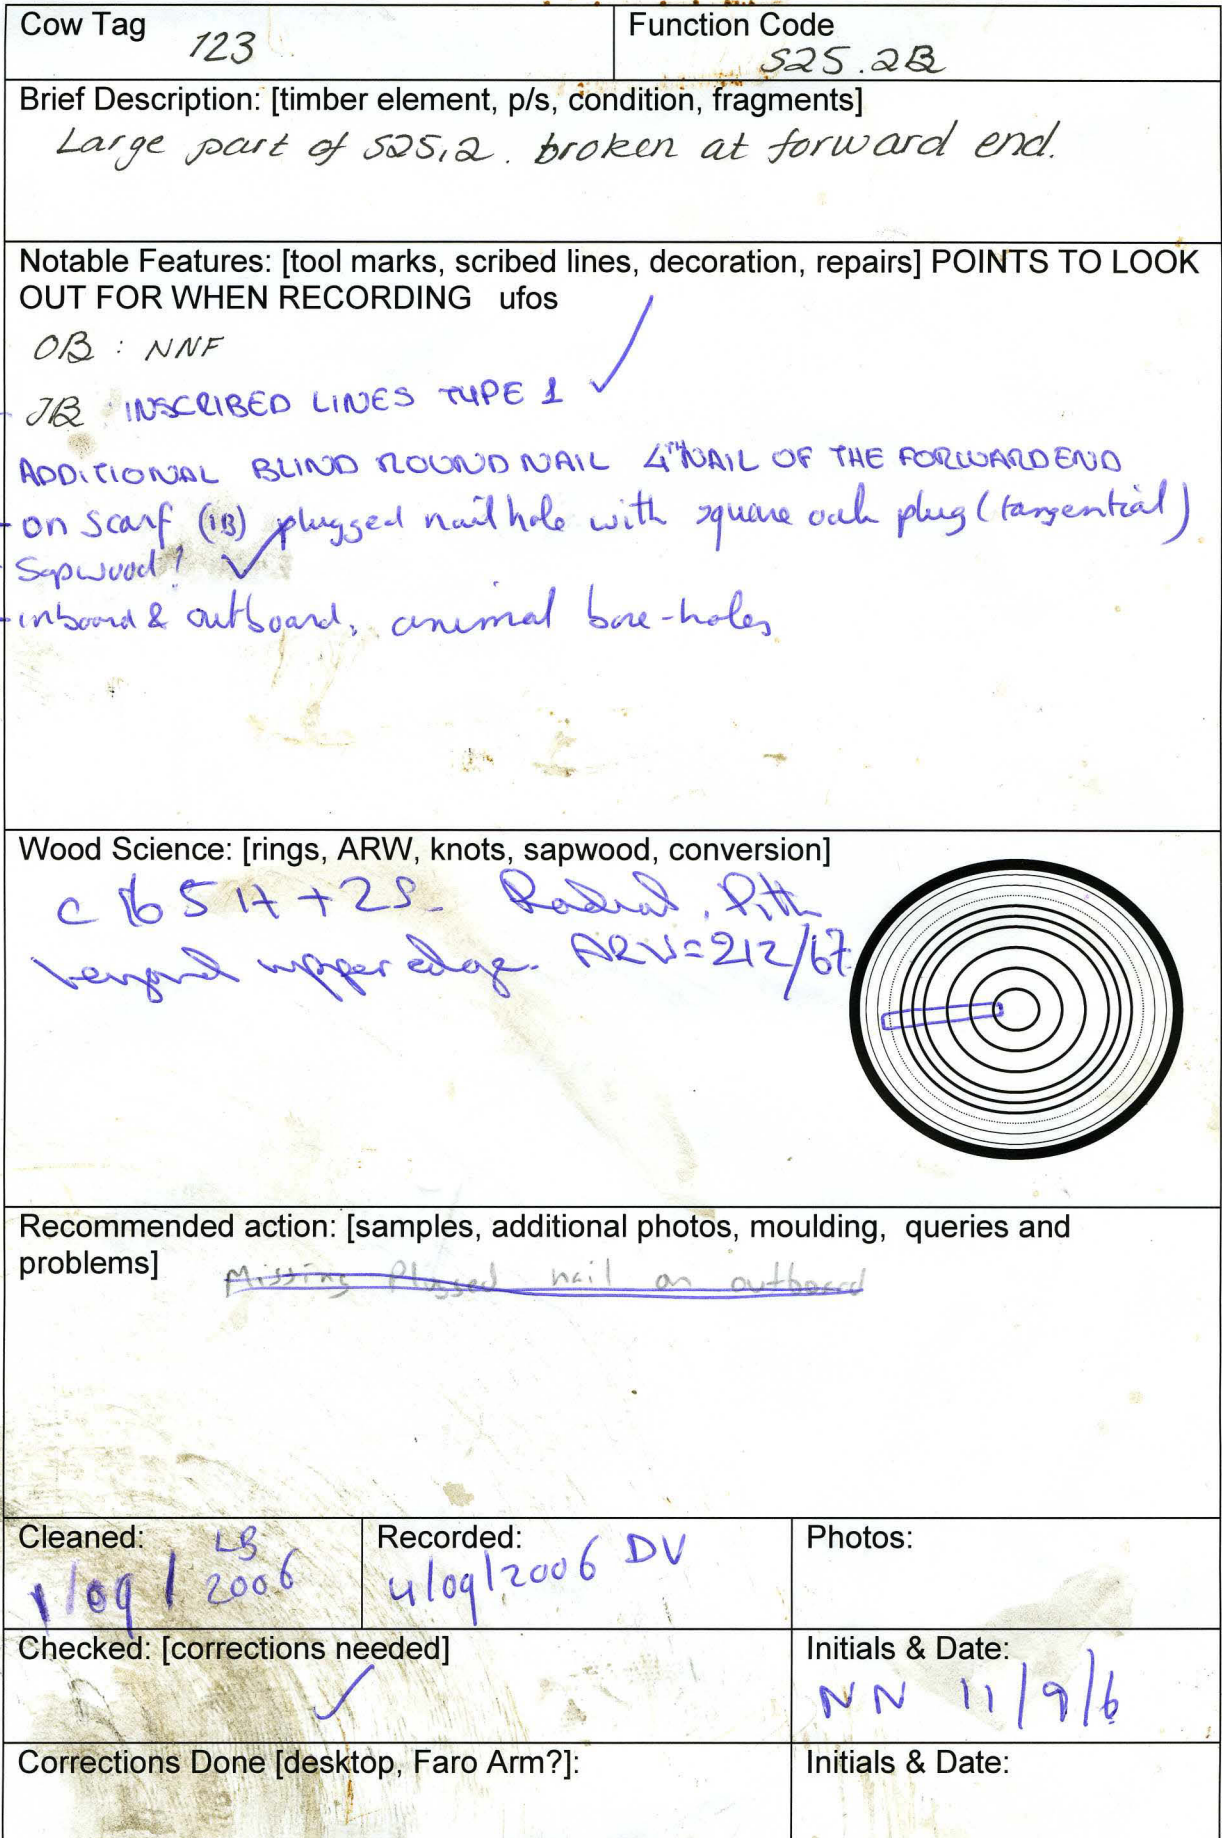 Cow Tag 123
Function Code S25.2B
Brief Description: [timber element, p/s, condition, fragments]
Large part of S25,2. broken at forward end.
Notable Features: [tool marks, scribed lines, decoration, repairs] POINTS TO LOOK
OUT FOR WHEN RECORDING ufos
OB : NNF
- IB INSCRIBED LINES TYPE 1 ✓
ADDITIONAL BLIND ROUND NAIL 4TH NAIL OF THE FORWARD END
- on scarf (IB) plugged nail hole with square oak plug (tangential)
- Sapwood! ✓
- inboard & outboard, animal bore-holes
Wood Science: [rings, ARW, knots, sapwood, conversion]
c 165 H + 2S. Radial. Pith
beyond upper edge. ARW=212/67.
Recommended action: [samples, additional photos, moulding, queries and
problems]
Missing Plugged nail on outboard
Cleaned: LB
1/09/2006
Recorded:
4/09/2006 DV
Photos:
Checked: [corrections needed]
✓
Initials & Date:
NN 11/9/6
Corrections Done [desktop, Faro Arm?]:
Initials & Date: